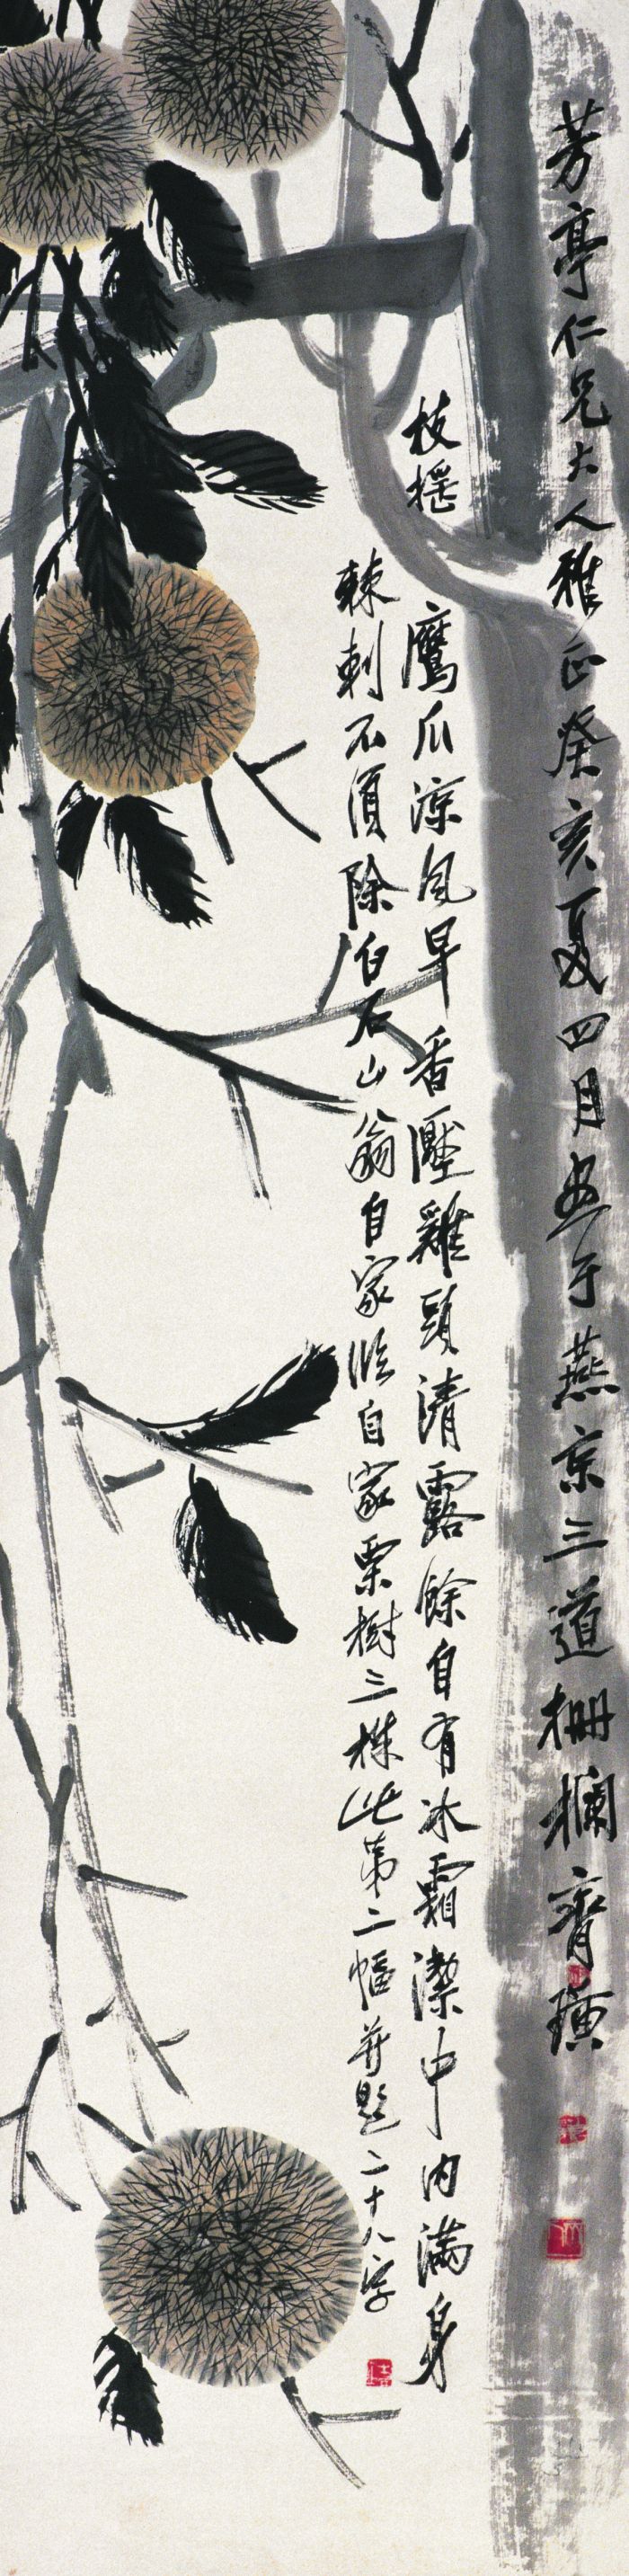 芳亭仁兄大人雅正癸亥夏四月畫于燕京三道柵欄齊璜
枝搖鷹爪涼風早香壓雞頭清露餘自有冰霜潔中內滿身
棘刺不須除白石山翁自家臨自家栗樹三株此第二幅并題二十八字